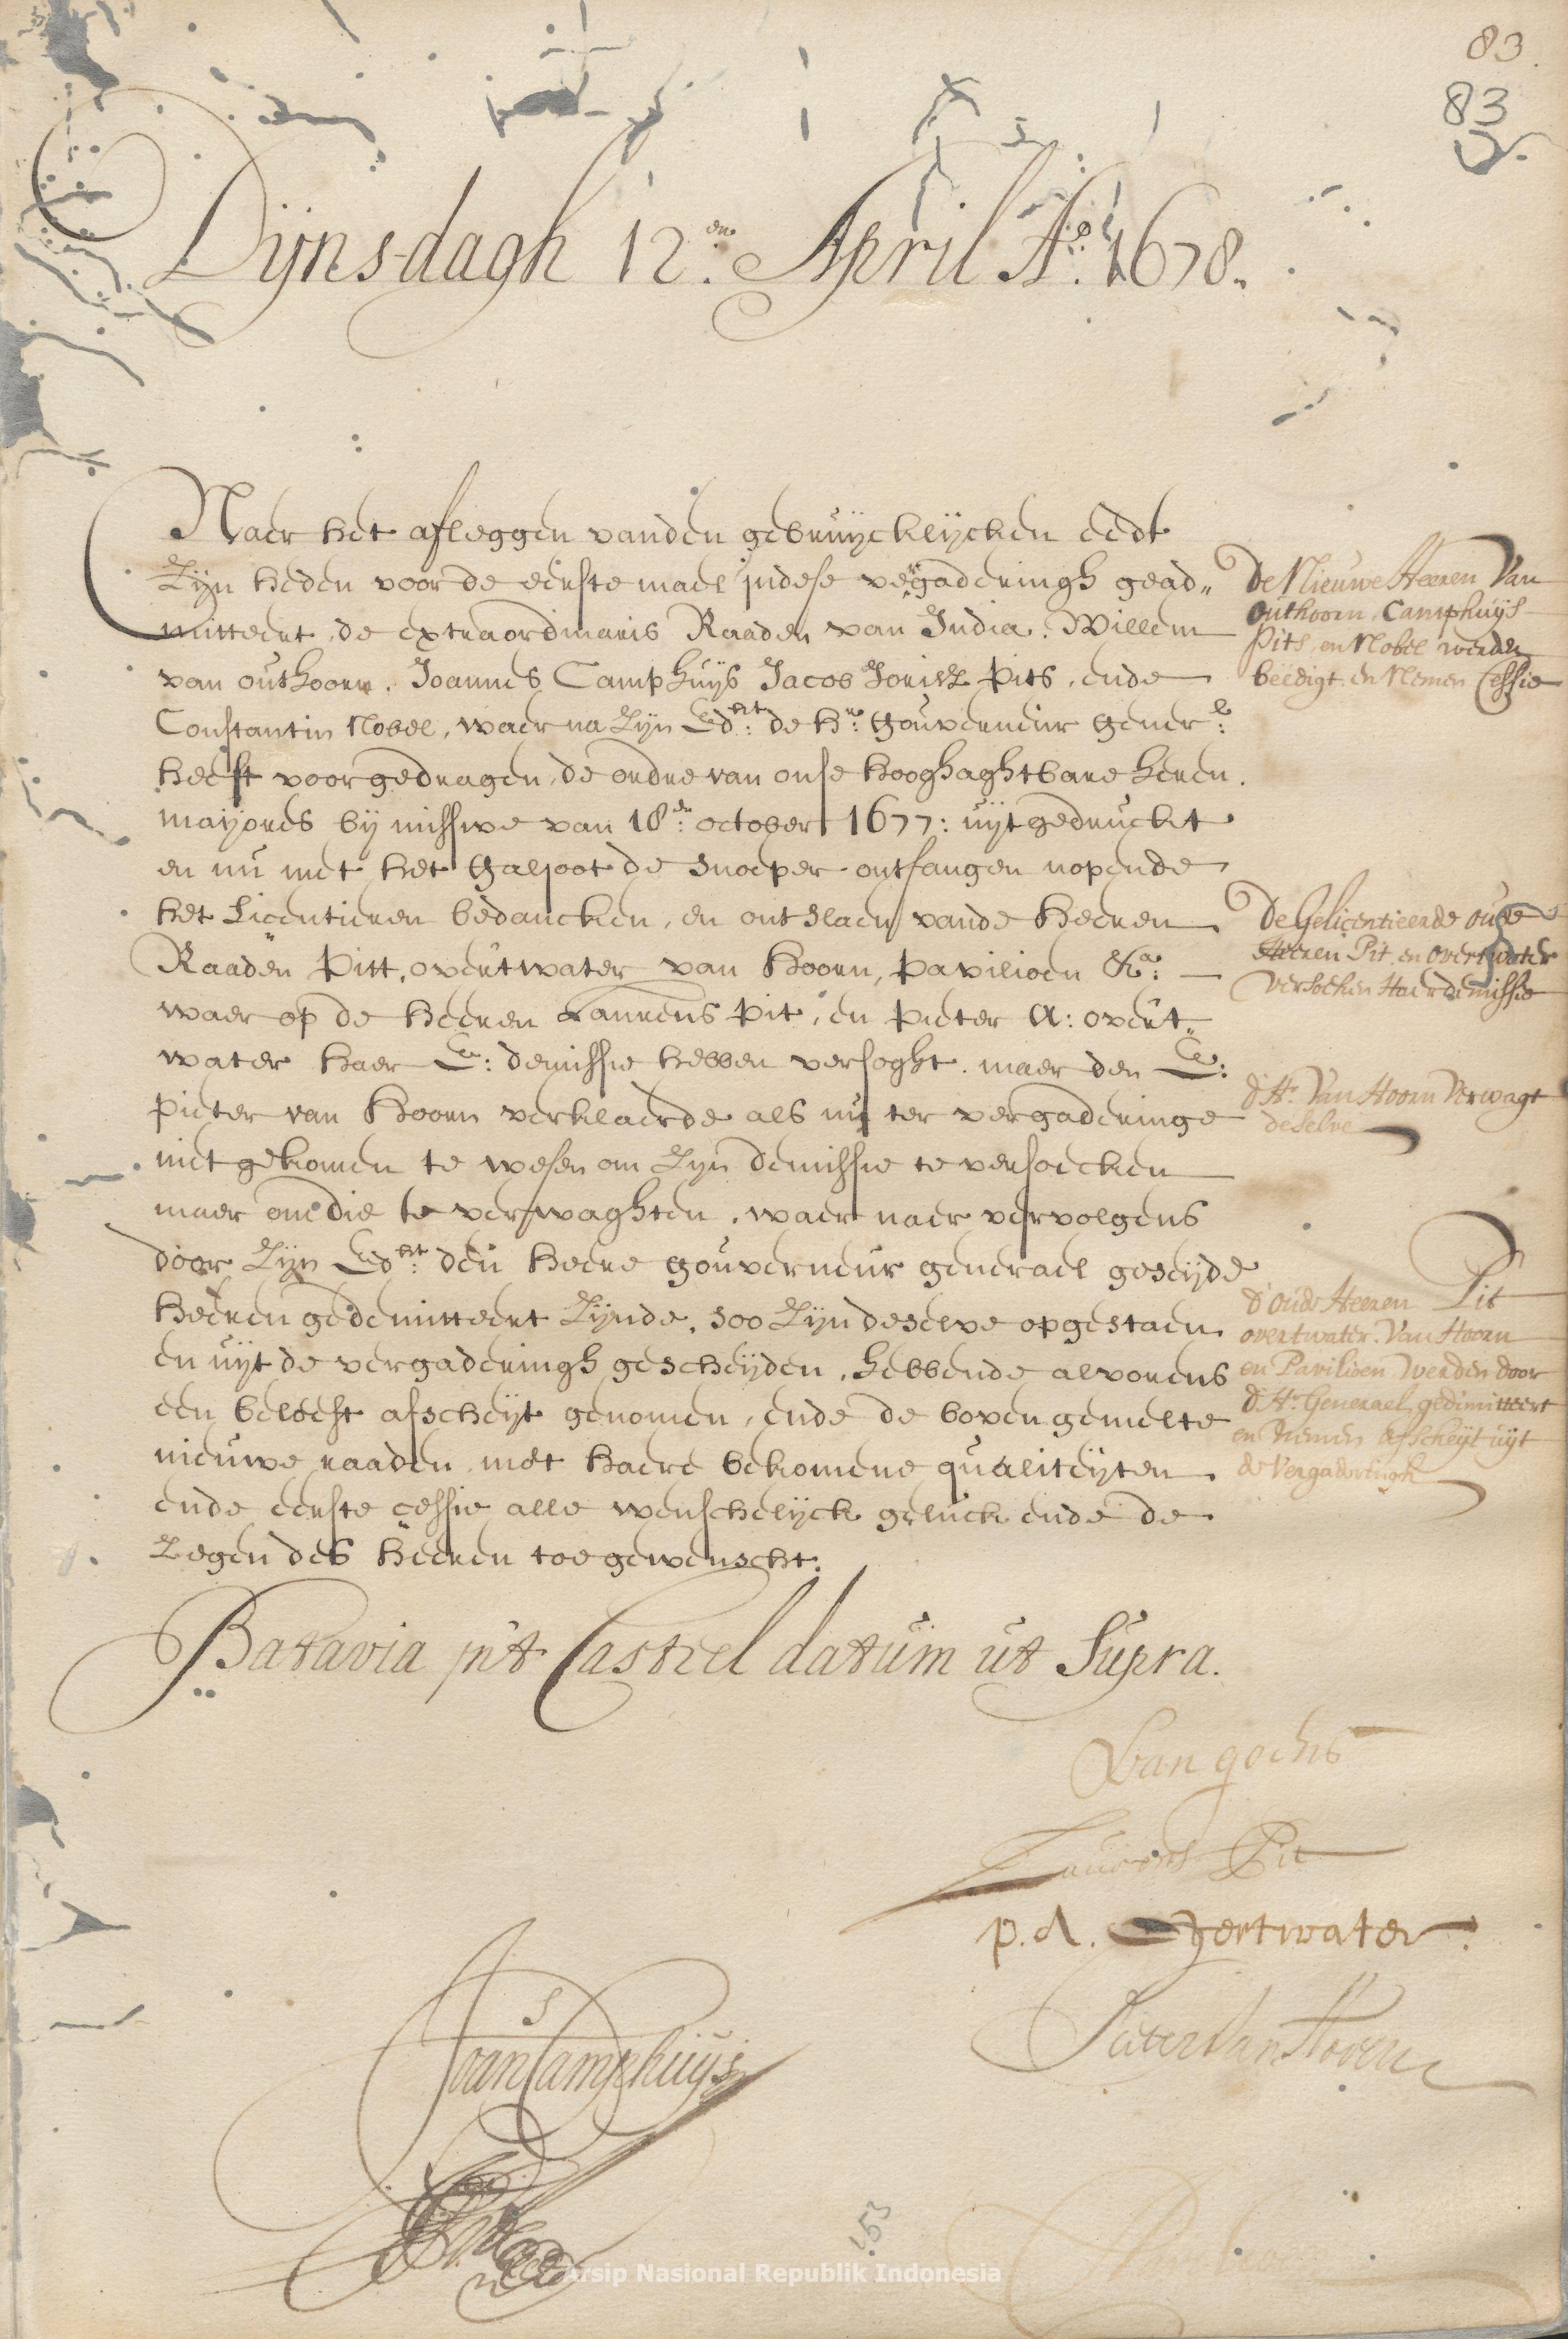 83.
83
Dijnsdagh 12.en April Ao. 1678.
Naer het afleggen vanden gebruijcklijcken eedt
Zijn heden voor de eerste mael indese vergaderingh gead„
mitteert, de extraordinaris Raaden van India. Willem
van outhoorn. Joannes Camphuijs Jacob Jorisz Pits, ende
Constantin Nobel, waer na Zijn Edht: de hr: Gouverneur Generl:
heeft voorgedragen, de ordre van onse hooghaghtbare heren.
mayores bij missive van 18en: october 1677: uijtgedruckt
en nu met het Galjoot de Snoeper ontfangen nopende
het Licentieren bedancken, en ontslaen vande Heeren
Raaden Pitt, overtwater van Hoorn, Pavilioen &a: —
waer op de Heeren Laurens Pit, en Pieter A: overt„
water haer E: demissie hebben versoght. maer den E:
Pieter van Hoorn verklaerde als nu ter vergaderinge
niet gekomen te wesen om Zijn demissie te versoecken
maer om die te verwaghten, waer naer vervolgens
door Zijn Edht: den Heere gouverneur generael geseijde
Heeren gedemitteert Zijnde, soo Zijn deselve opgestaen
en uijt de vergaderingh gescheijden, hebbende alvorens
een beleeft afscheijt genomen, ende de boven gemelte
nieuwe raaden, met haere bekomene qualiteijten
ende eerste cessie alle wenschelijck geluck ende de
Zegen des Heeren toegewenscht.
Batavia in't Casteel datum ut Supra.
De Nieuwe Heeren Van
outhoorn, Camphuijs
Pits, en Nobel werden
beëdigt, en Nemen Cessie
De Gelicentieerde oude
Heeren Pit, en overtwater
Versoeken Haer demissie
d'Hr. Van Hoorn Verwagt
deselve
d'oude Heeren Pit
overtwater. Van Hoorn
en Pavilioen werden door
d'Hr. Generael, gedimitteert
en Nemen afscheijt uijt
de Vergaderingh
Van goens
Laurens Pit
P. A. Overtwater.
Pieter Van Hoorn
Joan Camphuijs
153
Arsip Nasional Republik Indonesia